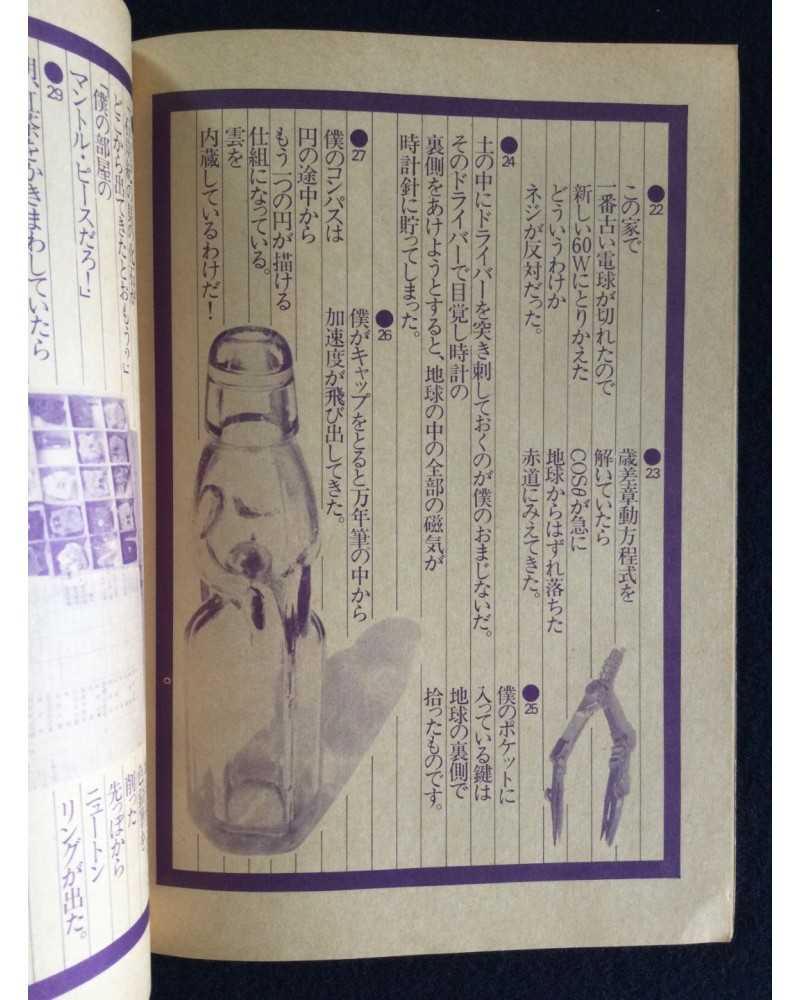 ●22
この家で
一番古い電球が切れたので
新しい60Wにとりかえた
どういうわけか
ネジが反対だった。
●23
歳差章動方程式を
解いていたら
COSθが急に
地球からはずれ落ちた
赤道にみえてきた。
●24
土の中にドライバーを突き刺しておくのが僕のおまじないだ。
そのドライバーで目覚し時計の
裏側をあけようとすると、地球の中の全部の磁気が
時計針に貯ってしまった。
●25
僕のポケットに
入っている鍵は
地球の裏側で
拾ったものです。
●26
僕がキャップをとると万年筆の中から
加速度が飛び出してきた。
●27
僕のコンパスは
円の途中から
もう一つの円が描ける
仕組になっている。
雲を
内蔵しているわけだ！
どこから出てきたとおもう？」
「僕の部屋の
マントル・ピースだろ！」
●29
紅茶をかきまわしていたら
削った
先っぽから
ニュートン
リングが出た。